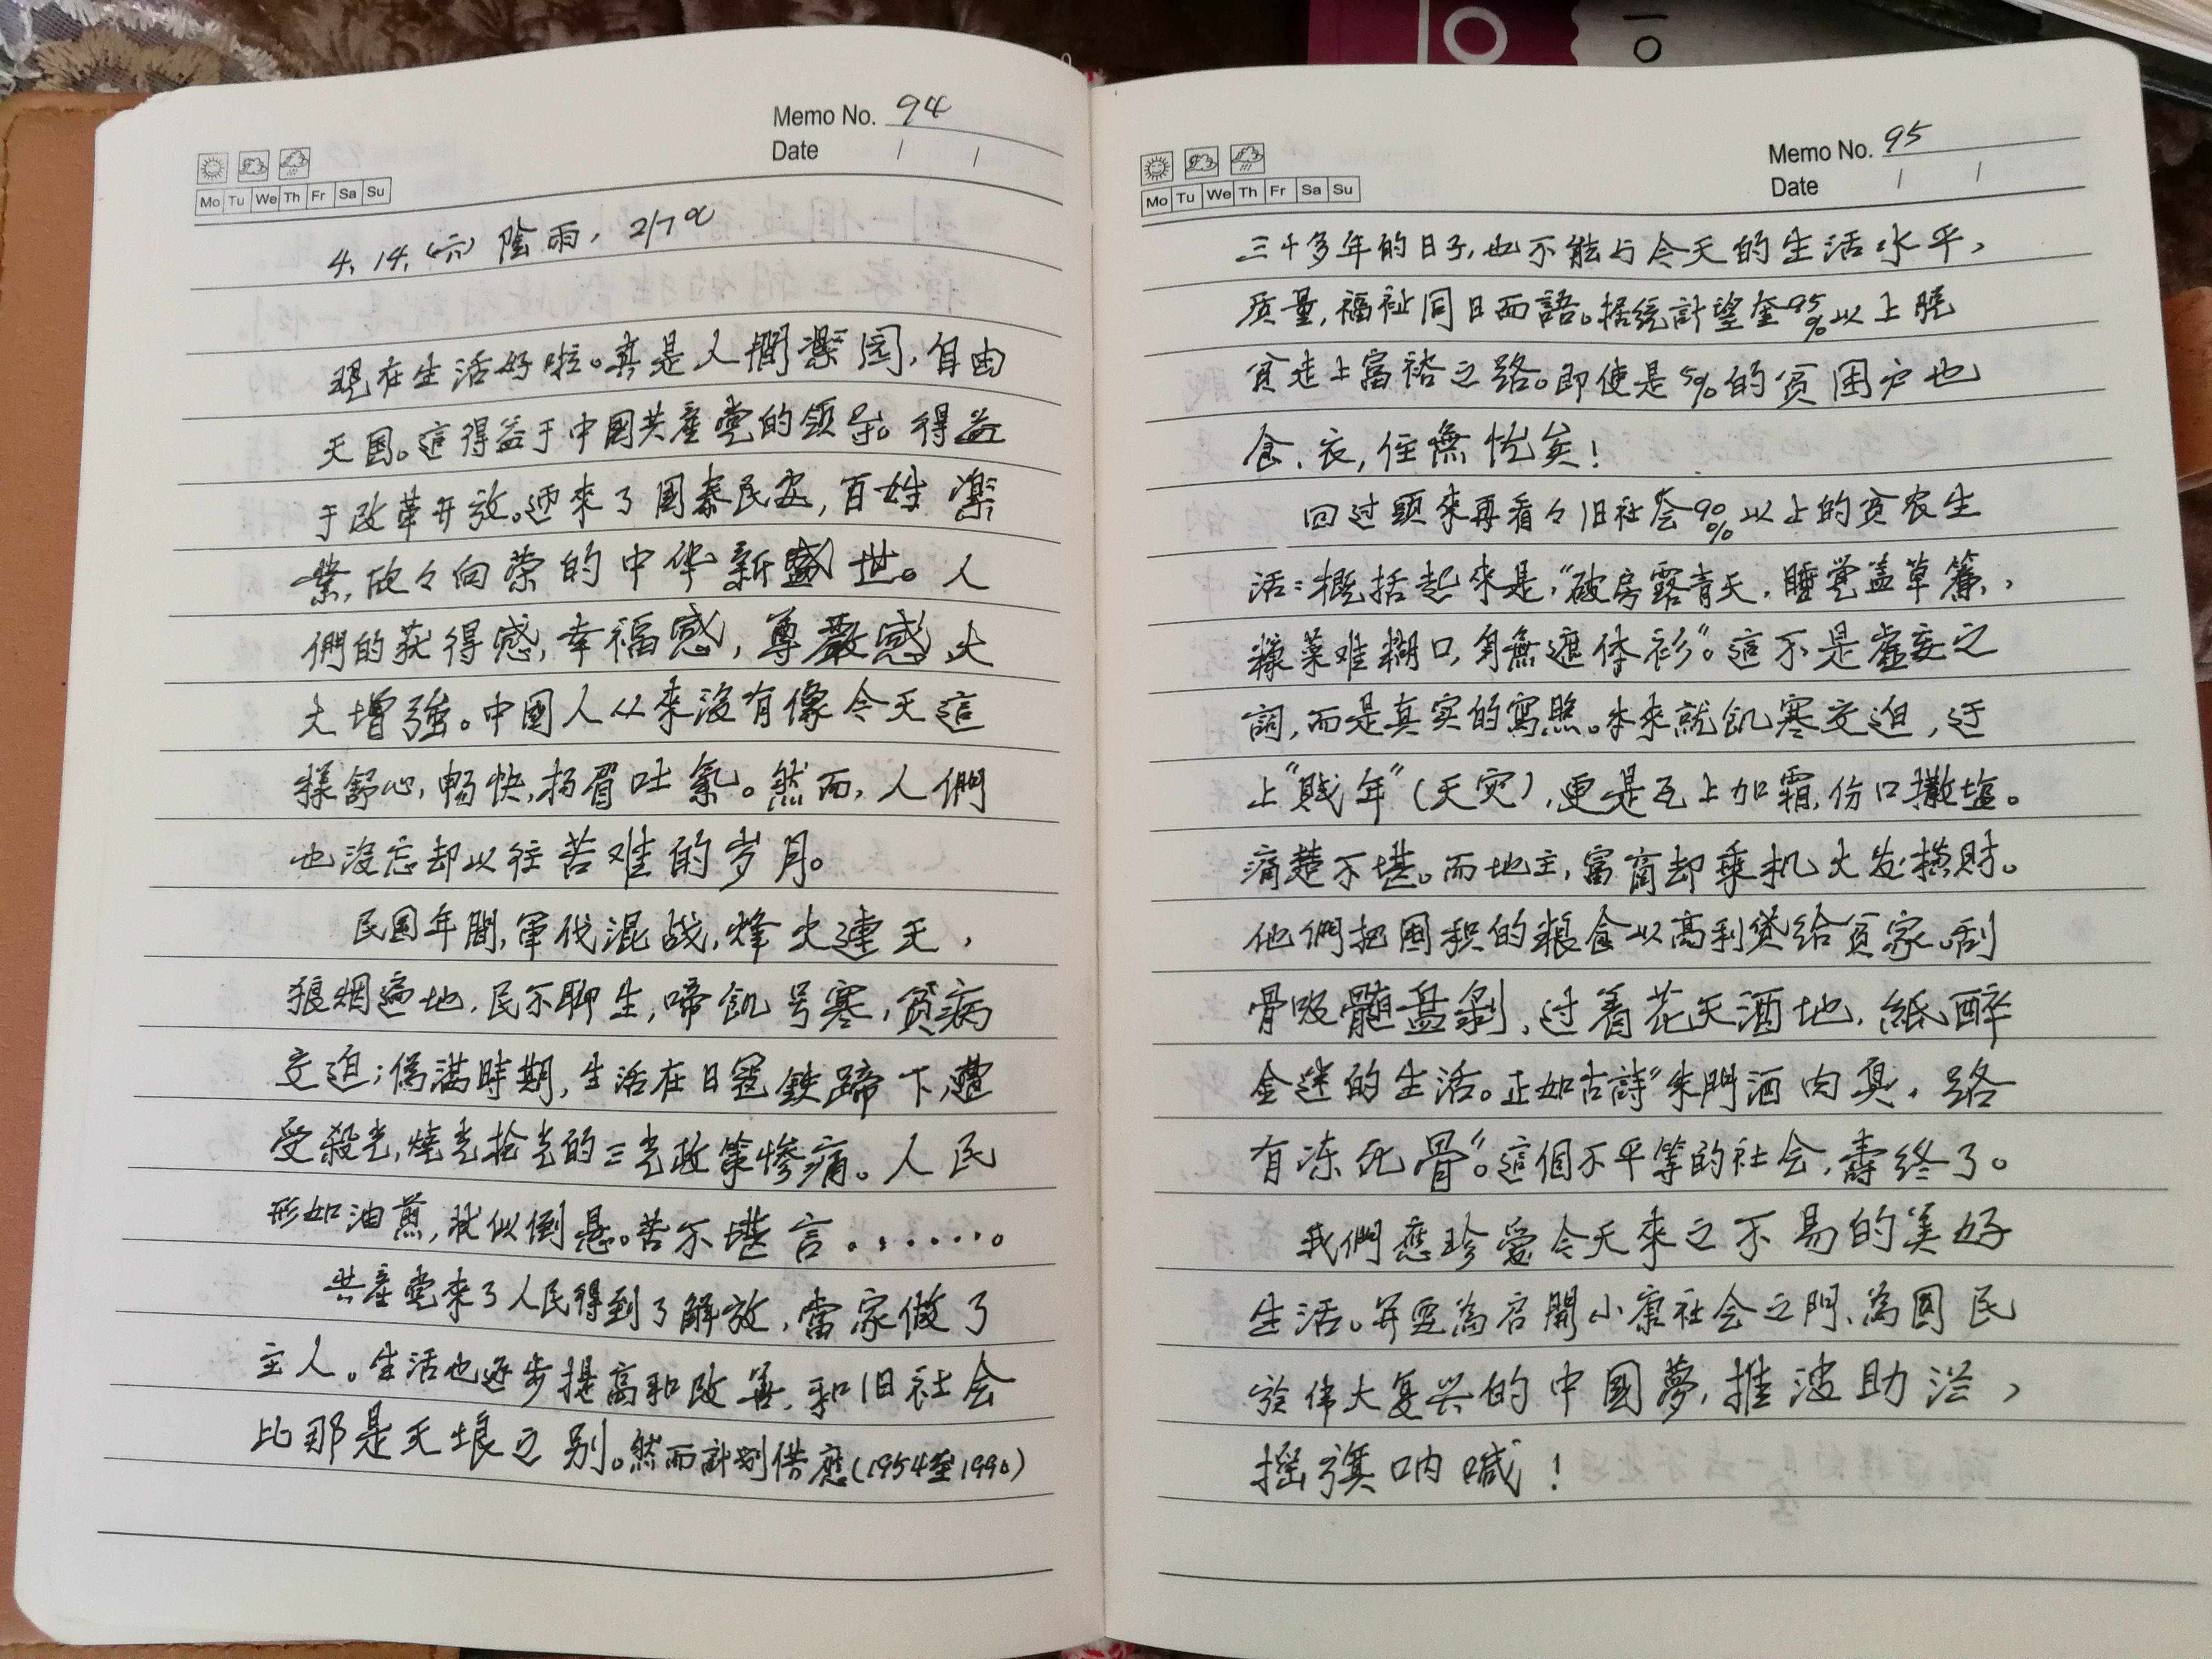 Memo No. 94
Date / /
Mo Tu We Th Fr Sa Su
4.14.(六) 陰雨, 2/7℃
現在生活好啦。真是人間樂园,自由
天国。這得益于中國共産党的领导。得益
于改革开放。迎來了國泰民安,百姓樂
業,欣々向荣的中华新盛世。人
們的获得感,幸福感,尊嚴感大
大增強。中國人从來沒有像今天這
樣舒心,暢快,扬眉吐氣。然而,人們
也沒忘却以往苦难的岁月。
民国年間,軍伐混战,烽火連天,
狼烟遍地,民不聊生,啼飢号寒,貧病
交迫;偽滿時期,生活在日寇鉄蹄下,遭
受殺光,燒光抢光的三光政策惨痛。人民
形如油煎,状似倒悬。苦不堪言。......。
共産党來了人民得到了解放,當家做了
主人。生活也逐步提高和改善,和旧社会
比那是天埌之别。然而計划供應(1954至1990)
Memo No. 95
Date / /
Mo Tu We Th Fr Sa Su
三十多年的日子,也不能与今天的生活水平,
质量,福祉同日而語。据统計望奎95%以上脱
贫走上富裕之路。即使是5%的贫困户也
食、衣,住無忧矣!
回过頭來再看々旧社会90%以上的贫农生
活:概括起來是,“破房露青天,睡觉盖草簾,
糠菜难糊口,身無遮体衫”。這不是虛妄之
詞,而是真实的寫照。本來就飢寒交迫,迂
上“賎年”(天灾),更是瓦上加霜,份口撒塩。
痛楚不堪。而地主,富商却乘机大发横財。
他們把囤积的粮食以高利贷给贫家。刮
骨吸髓盘剝,过着花天酒地,紙醉
金迷的生活。正如古詩“朱門酒肉臭,路
有冻死骨”。這個不平等的社会,壽终了。
我們應珍爱今天來之不易的美好
生活。并要為启開小康社会之門、為國民
族伟大复兴的中國夢,推波助澜,
摇旗呐喊!